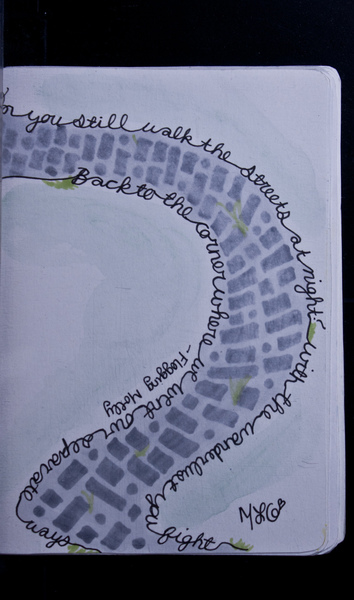 or you still walk the streets at night with the wanderlust you fight
Back to the corner where we went our separate ways
- Flogging Molly